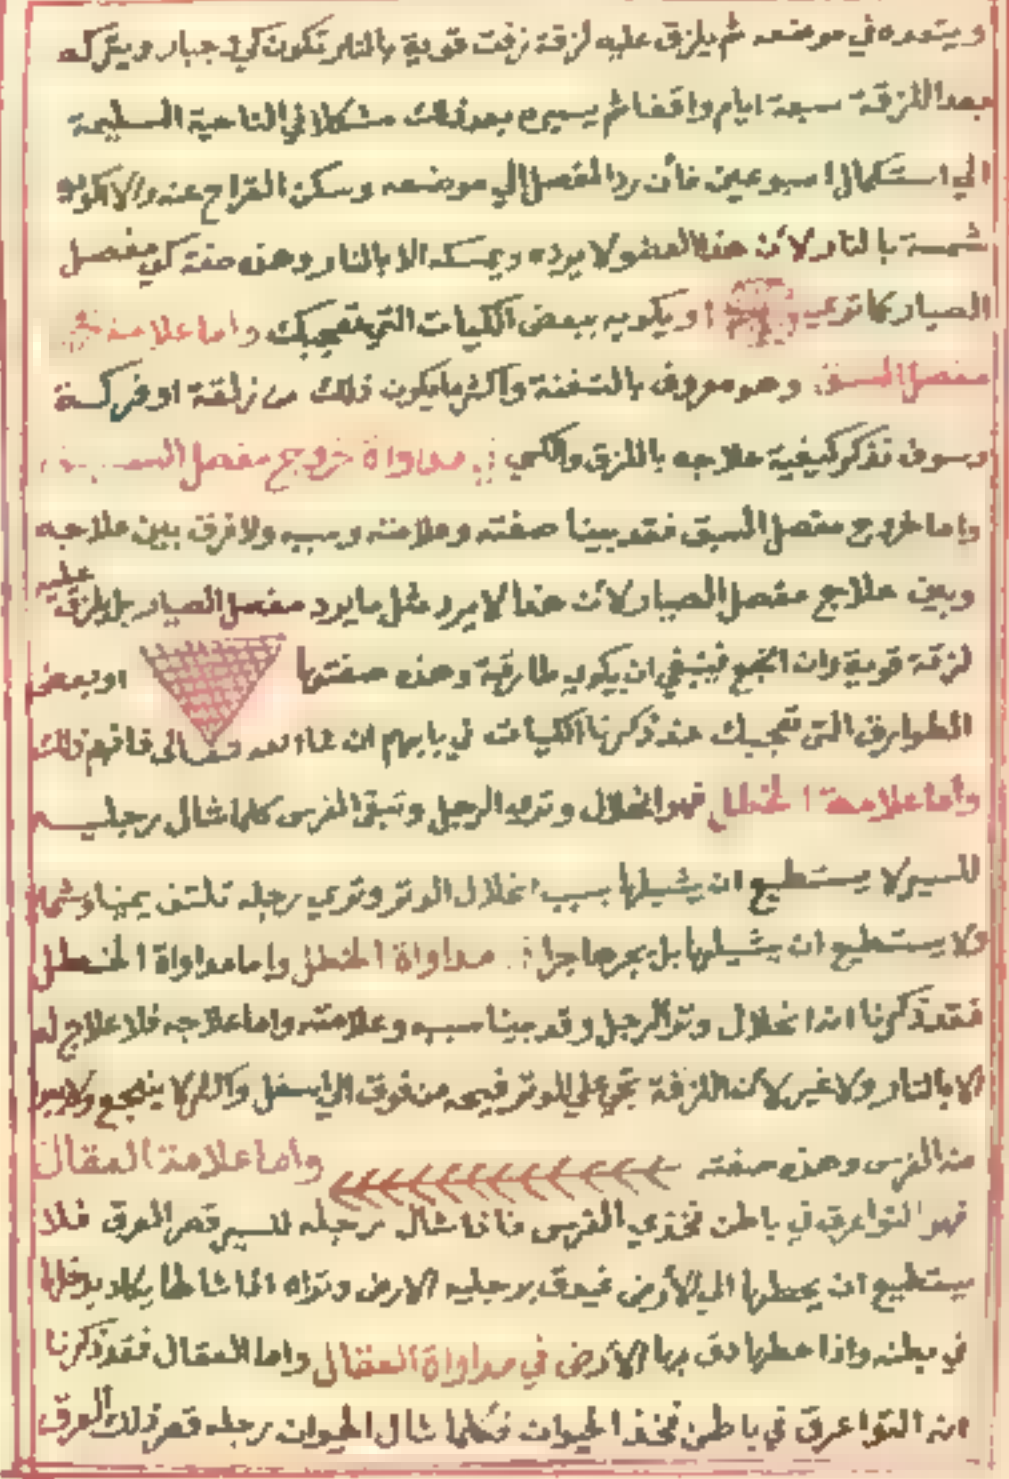 ويتعده في موضعه ثم يلزق عليه لزقة زفت قوية بالنار تكون كي جبار ويتركه
بعد اللزقة سبعة ايام واقفا ثم يسيره بعد ذلك مشكلا في الناحية السليمة
الي استكمال اسبوعين فأن رد المفصل الي موضعه وسكن القراح عنه والا كواه
شمسة بالنار لأن هذا العضو لا يرده ويمسكه الا بالنار وهذه صفة كي مفصل
الصبار كما تري او يكويه ببعض الكيات التي تعجبك واما علامة
مفصل السبق وهو معروف بالتفنة وأكثر ما يكون ذلك من زلقة او فركسة
وسوف نذكر كيفية علاجه باللزق والكي في مداواة خروج مفصل السبق
واما خروج مفصل السبق فقد بينا صفته وعلامته وسببه ولا فرق بين علاجه
وبين علاج مفصل الصبار لأن هذا لا يرد مثل ما يرد مفصل الصبار بل يلزق عليه
لزقة قوية وان انجع فينبغي ان يكوي طارقية وهذه صفتها او بعض
الطوارق التي تعجبك عند ذكرنا الكيات في بابهم ان شاء الله تعالى فافهم ذلك
وأما علامة الخنطل فهو انخلال وتر الرجل وتبقى الفرس كلما شال رجليه
للسير لا يستطيع ان يشيلها بسبب انخلال الوتر وتري رجله تلتف يمينا وشمالا
ولا يستطيع ان يشيلها بل يجرها جرا في مداواة الخنطل واما مداواة الخنطل
فقد ذكرنا انه انخلال وتر الرجل وقد بينا سببه وعلامته واما علاجه فلا علاج له
الا بالنار ولا غير لأن اللزقة تجي على الوتر فيجه من فوق الي اسفل والا لا ينجع ولا يبرا
منه الفرس وهذه صفته واما علامة العقال
فهو التوا عرق في باطن فخذي الفرس فاذا شال رجله للسير قصر العرق فلا
يستطيع ان يحطها الي الأرض فيدق برجليه الارض وتراه اذا شالها يكاد يدخلها
في بطنه واذا حطها دق بها الأرض في مداواة العقال واما العقال فقد ذكرنا
انه التوا عرق في باطن فخذ الحيوان فكلما شال الحيوان رجله قصر ذلك العرق